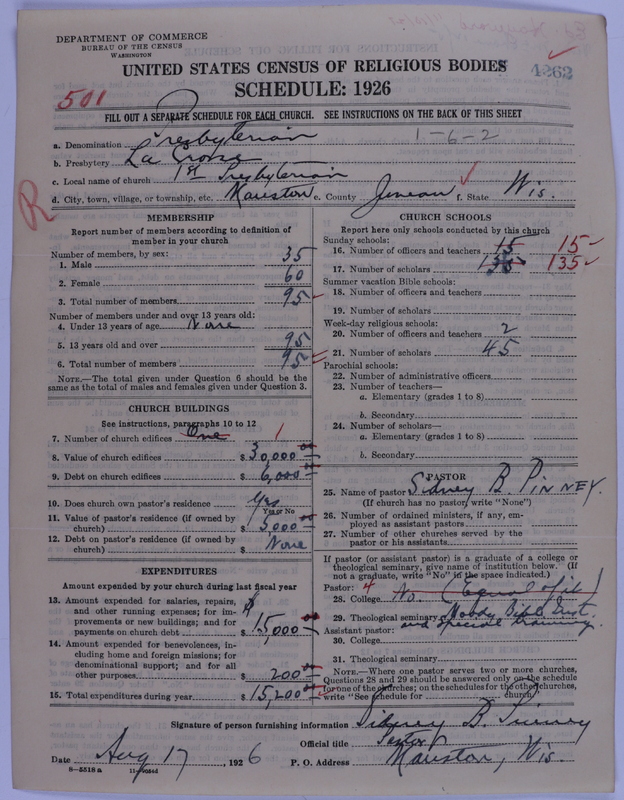 DEPARTMENT OF COMMERCE
BUREAU OF THE CENSUS
WASHINGTON
UNITED STATES CENSUS OF RELIGIOUS BODIES
4262
SCHEDULE: 1926
501
FILL OUT A SEPARATE SCHEDULE FOR EACH CHURCH. SEE INSTRUCTIONS ON THE BACK OF THIS SHEET
a. Denomination Presbyterian 1-6-2
b. Presbytery La Crosse
c. Local name of church 1st Presbyterian
d. City, town, village, or township, etc. Mauston e. County Juneau f. State Wis.
R
MEMBERSHIP
Report number of members according to definition of
member in your church
Number of members, by sex:
1. Male 35
2. Female 60
3. Total number of members 95
Number of members under and over 13 years old:
4. Under 13 years of age None
5. 13 years old and over 95
6. Total number of members 95
NOTE.—The total given under Question 6 should be the
same as the total of males and females given under Question 3.
CHURCH BUILDINGS
See instructions, paragraphs 10 to 12
7. Number of church edifices One 1
8. Value of church edifices $30,000 00
9. Debt on church edifices $6,000 00
10. Does church own pastor's residence Yes
Yes or No
11. Value of pastor's residence (if owned by
church) $5,000 00
12. Debt on pastor's residence (if owned by
church) $ None
EXPENDITURES
Amount expended by your church during last fiscal year
13. Amount expended for salaries, repairs,
and other running expenses; for im-
provements or new buildings; and for
payments on church debt $15,000 00
14. Amount expended for benevolences, in-
cluding home and foreign missions; for
denominational support; and for all
other purposes $200 00
15. Total expenditures during year $15,200 00
CHURCH SCHOOLS
Report here only schools conducted by this church
Sunday schools:
16. Number of officers and teachers 15 15
17. Number of scholars 135 135
Summer vacation Bible schools:
18. Number of officers and teachers
19. Number of scholars
Week-day religious schools:
20. Number of officers and teachers 2
21. Number of scholars 45
Parochial schools:
22. Number of administrative officers
23. Number of teachers—
a. Elementary (grades 1 to 8)
b. Secondary
24. Number of scholars—
a. Elementary (grades 1 to 8)
b. Secondary
PASTOR
25. Name of pastor Sidney B. Pinney.
(If church has no pastor, write "None")
26. Number of ordained ministers, if any, em-
ployed as assistant pastors
27. Number of other churches served by the
pastor or his assistants
If pastor (or assistant pastor) is a graduate of a college or
theological seminary, give name of institution below. (If
not a graduate, write "No" in the space indicated.)
Pastor: 4
28. College No (Equal of it)
29. Theological seminary Moody Bible Inst.
and special training.
Assistant pastor:
30. College
31. Theological seminary
NOTE.—Where one pastor serves two or more churches,
Questions 28 and 29 should be answered only on the schedule
for one of the churches; on the schedules for the other churches,
write "See schedule for church."
Signature of person furnishing information Sidney B. Pinney
Official title Pastor
Date Aug 17, 1926 P. O. Address Mauston, Wis.
8—5518a